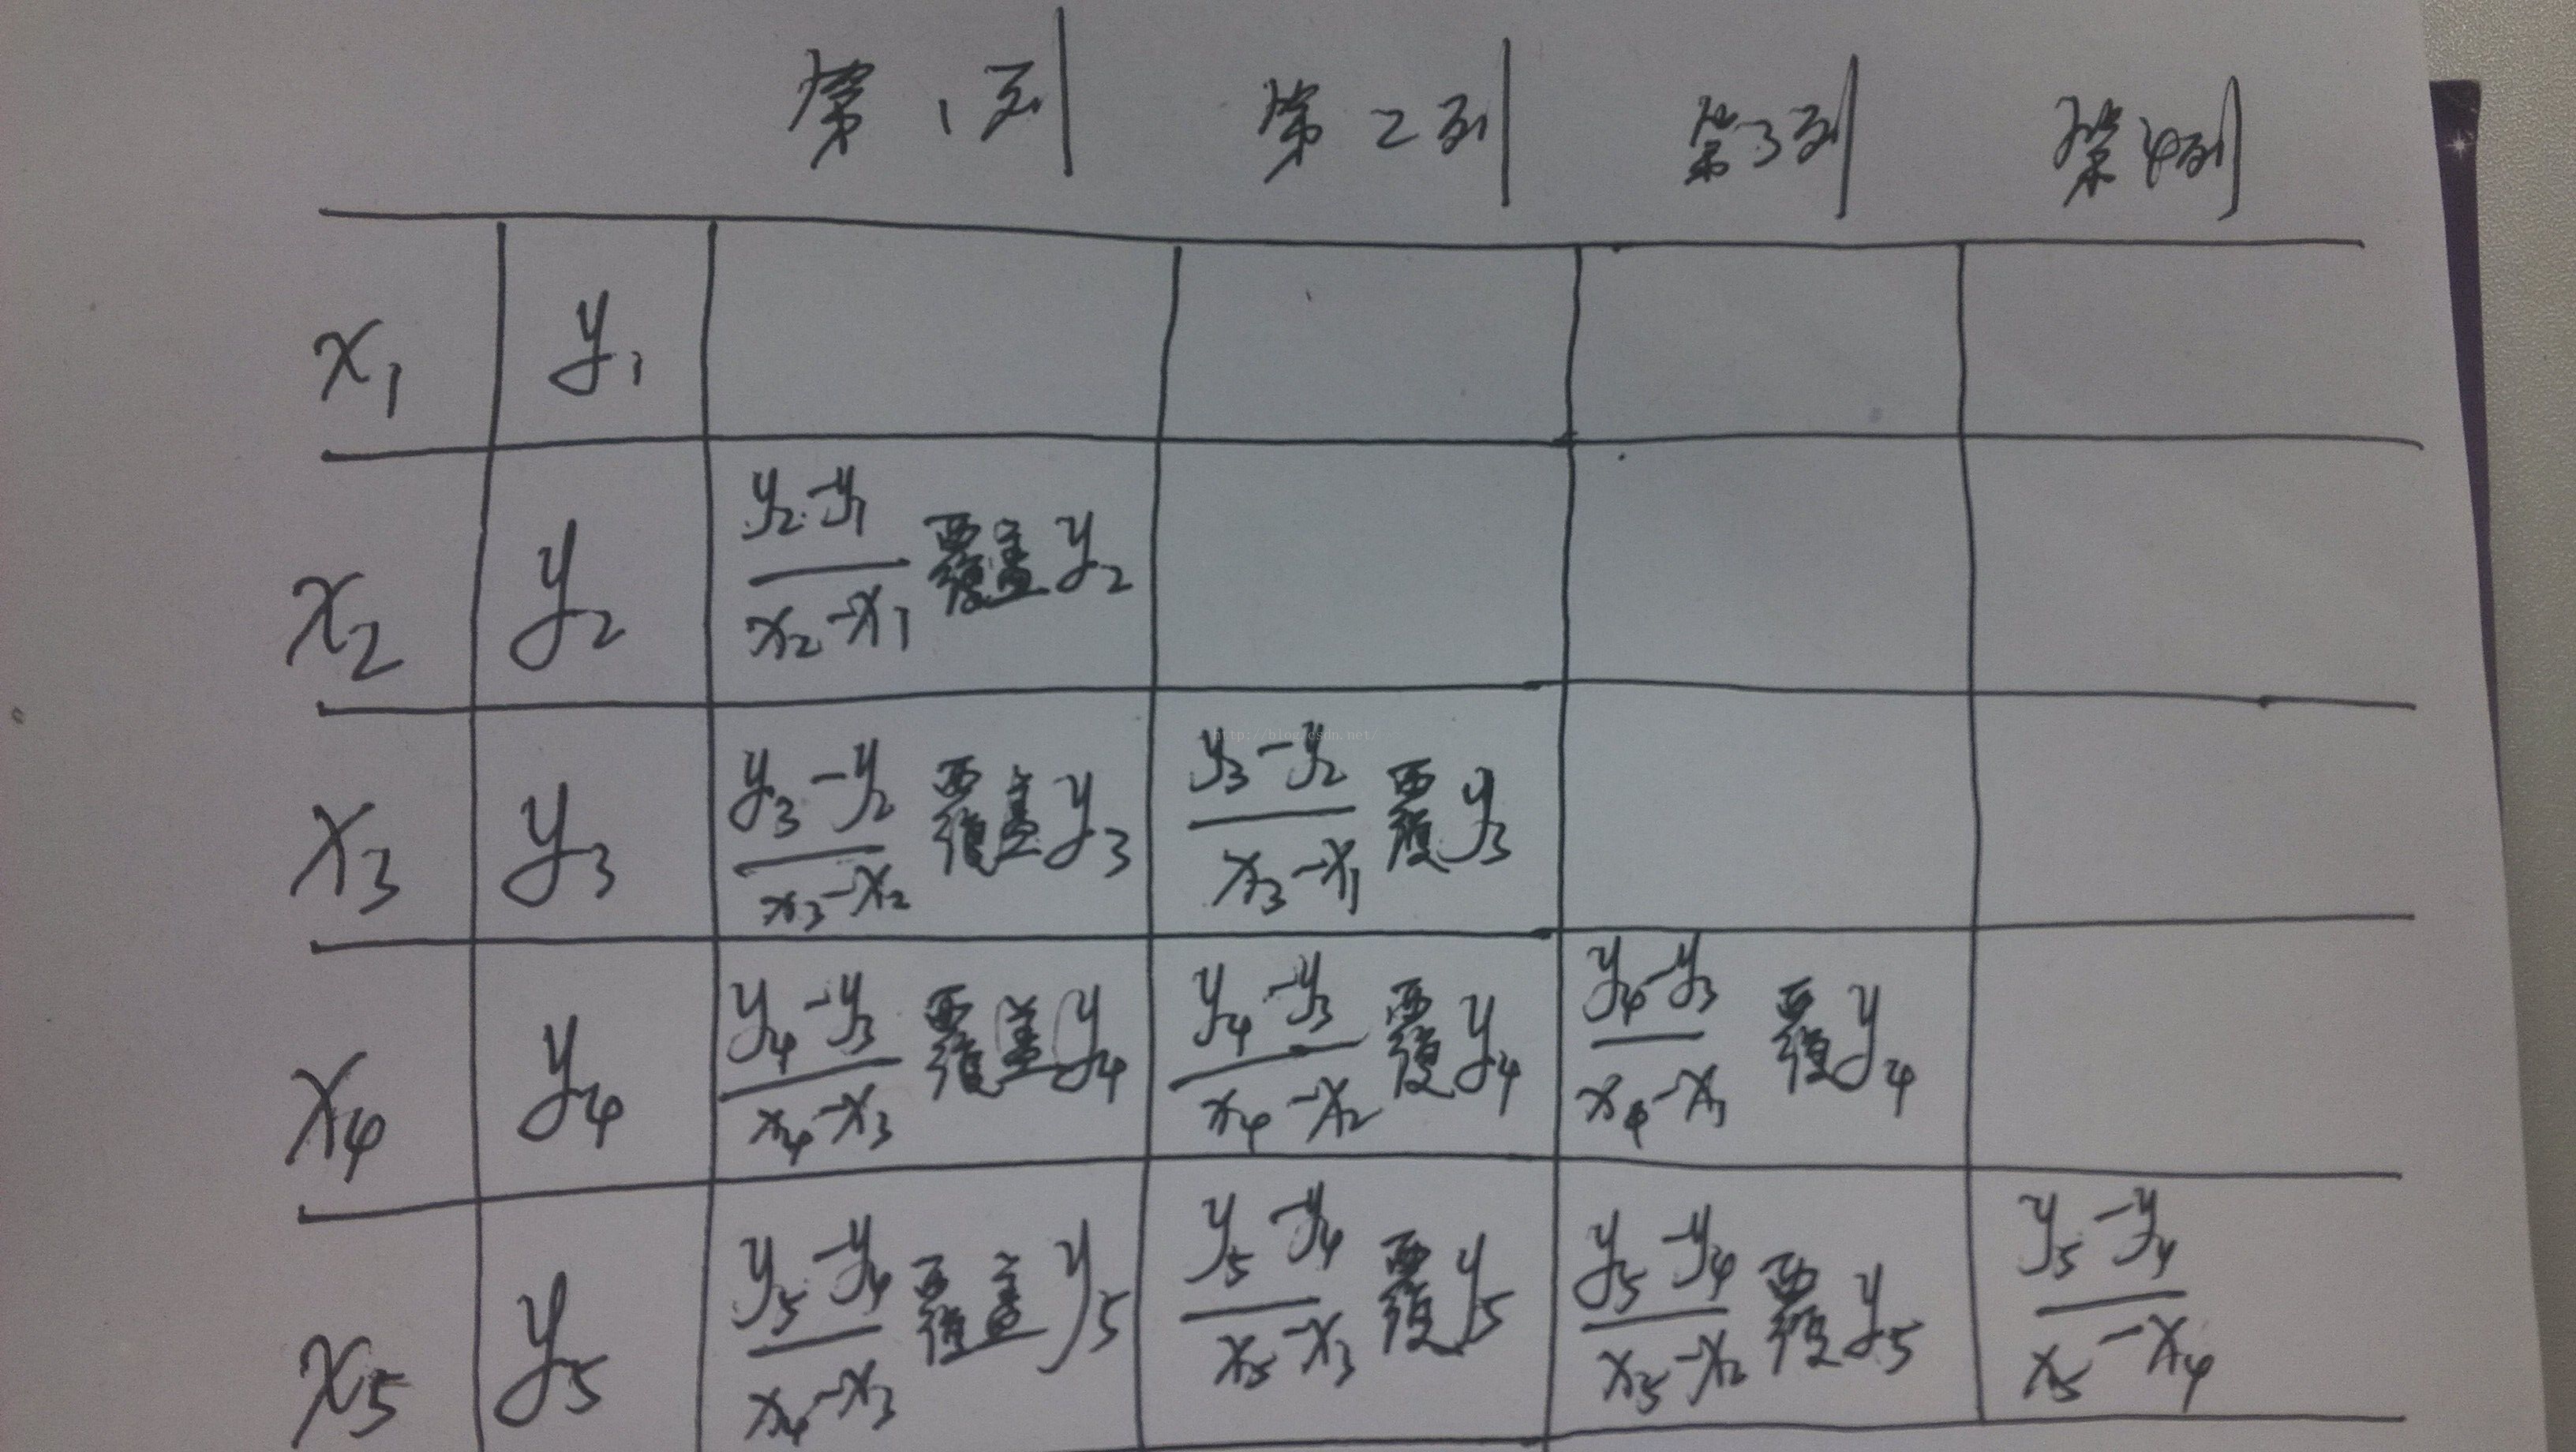 第1列 第2列 第3列 第4列
x₁ y₁
x₂ y₂ (y₂-y₁)/(x₂-x₁) 覆盖y₂
http://blog.csdn.net/
x₃ y₃ (y₃-y₂)/(x₃-x₂) 覆盖y₃ (y₃-y₂)/(x₃-x₁) 覆y₃
x₄ y₄ (y₄-y₃)/(x₄-x₃) 覆盖y₄ (y₄-y₃)/(x₄-x₂) 覆y₄ (y₄-y₃)/(x₄-x₁) 覆y₄
x₅ y₅ (y₅-y₄)/(x₄-x₃) 覆盖y₅ (y₅-y₄)/(x₅-x₃) 覆y₅ (y₅-y₄)/(x₅-x₂) 覆y₅ (y₅-y₄)/(x₅-x₄)